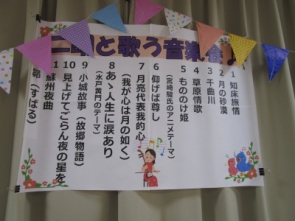 と歌う音楽会
1 知床旅情
2 月の砂漠
3 千曲川
4 草原情歌
5 もののけ姫
(宮崎駿氏のアニメテーマ)
6 仰げば尊し
7 月亮代表我的心
(我が心は月の如く)
8 あゝ人生に涙あり
(水戸黄門のテーマ)
9 小城故事(故郷物語)
10 見上げてごらん夜の星を
蘇州夜曲
昴(すばる)